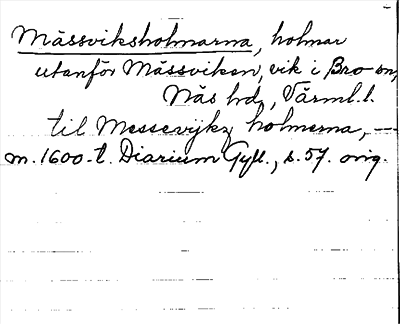 Mässviksholmarna, holmar
utanför Mässviken, vik i Bro sn,
Näs hd, Värml. l.
til Messevijkz holmerna, —
m. 1600-t. Diarium Gyll., s. 57. orig.